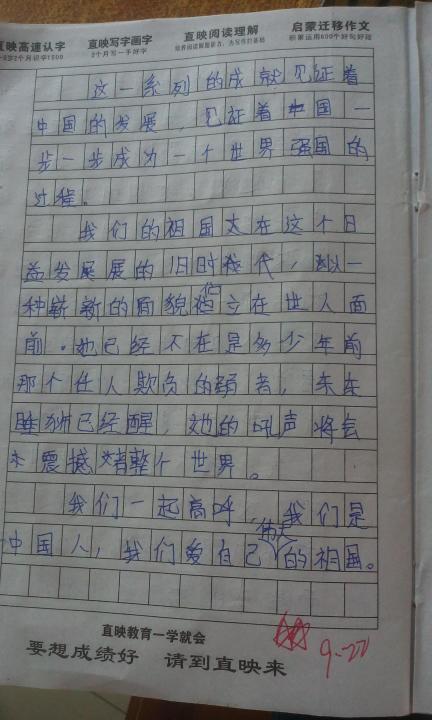 直映高速认字 直映写字画字 直映阅读理解 启蒙迁移作文
2个月写一手好字
这一系列的成就见证着
中国的发展,见证着中国一
步一步成为一个世界强国的
过程。
我们的祖国大在这个日
益发展展的旧时代,以一
种崭新的面貌屹立在世人面
前。她已经不在是多少年前
那个任人欺负的弱者,东
睡狮已经醒,她的吼声将会
震撼整个世界。
我们一起高呼,我们是
中国人,我们爱自己伟大的祖国。
直映教育一学就会
要想成绩好 请到直映来
9-22